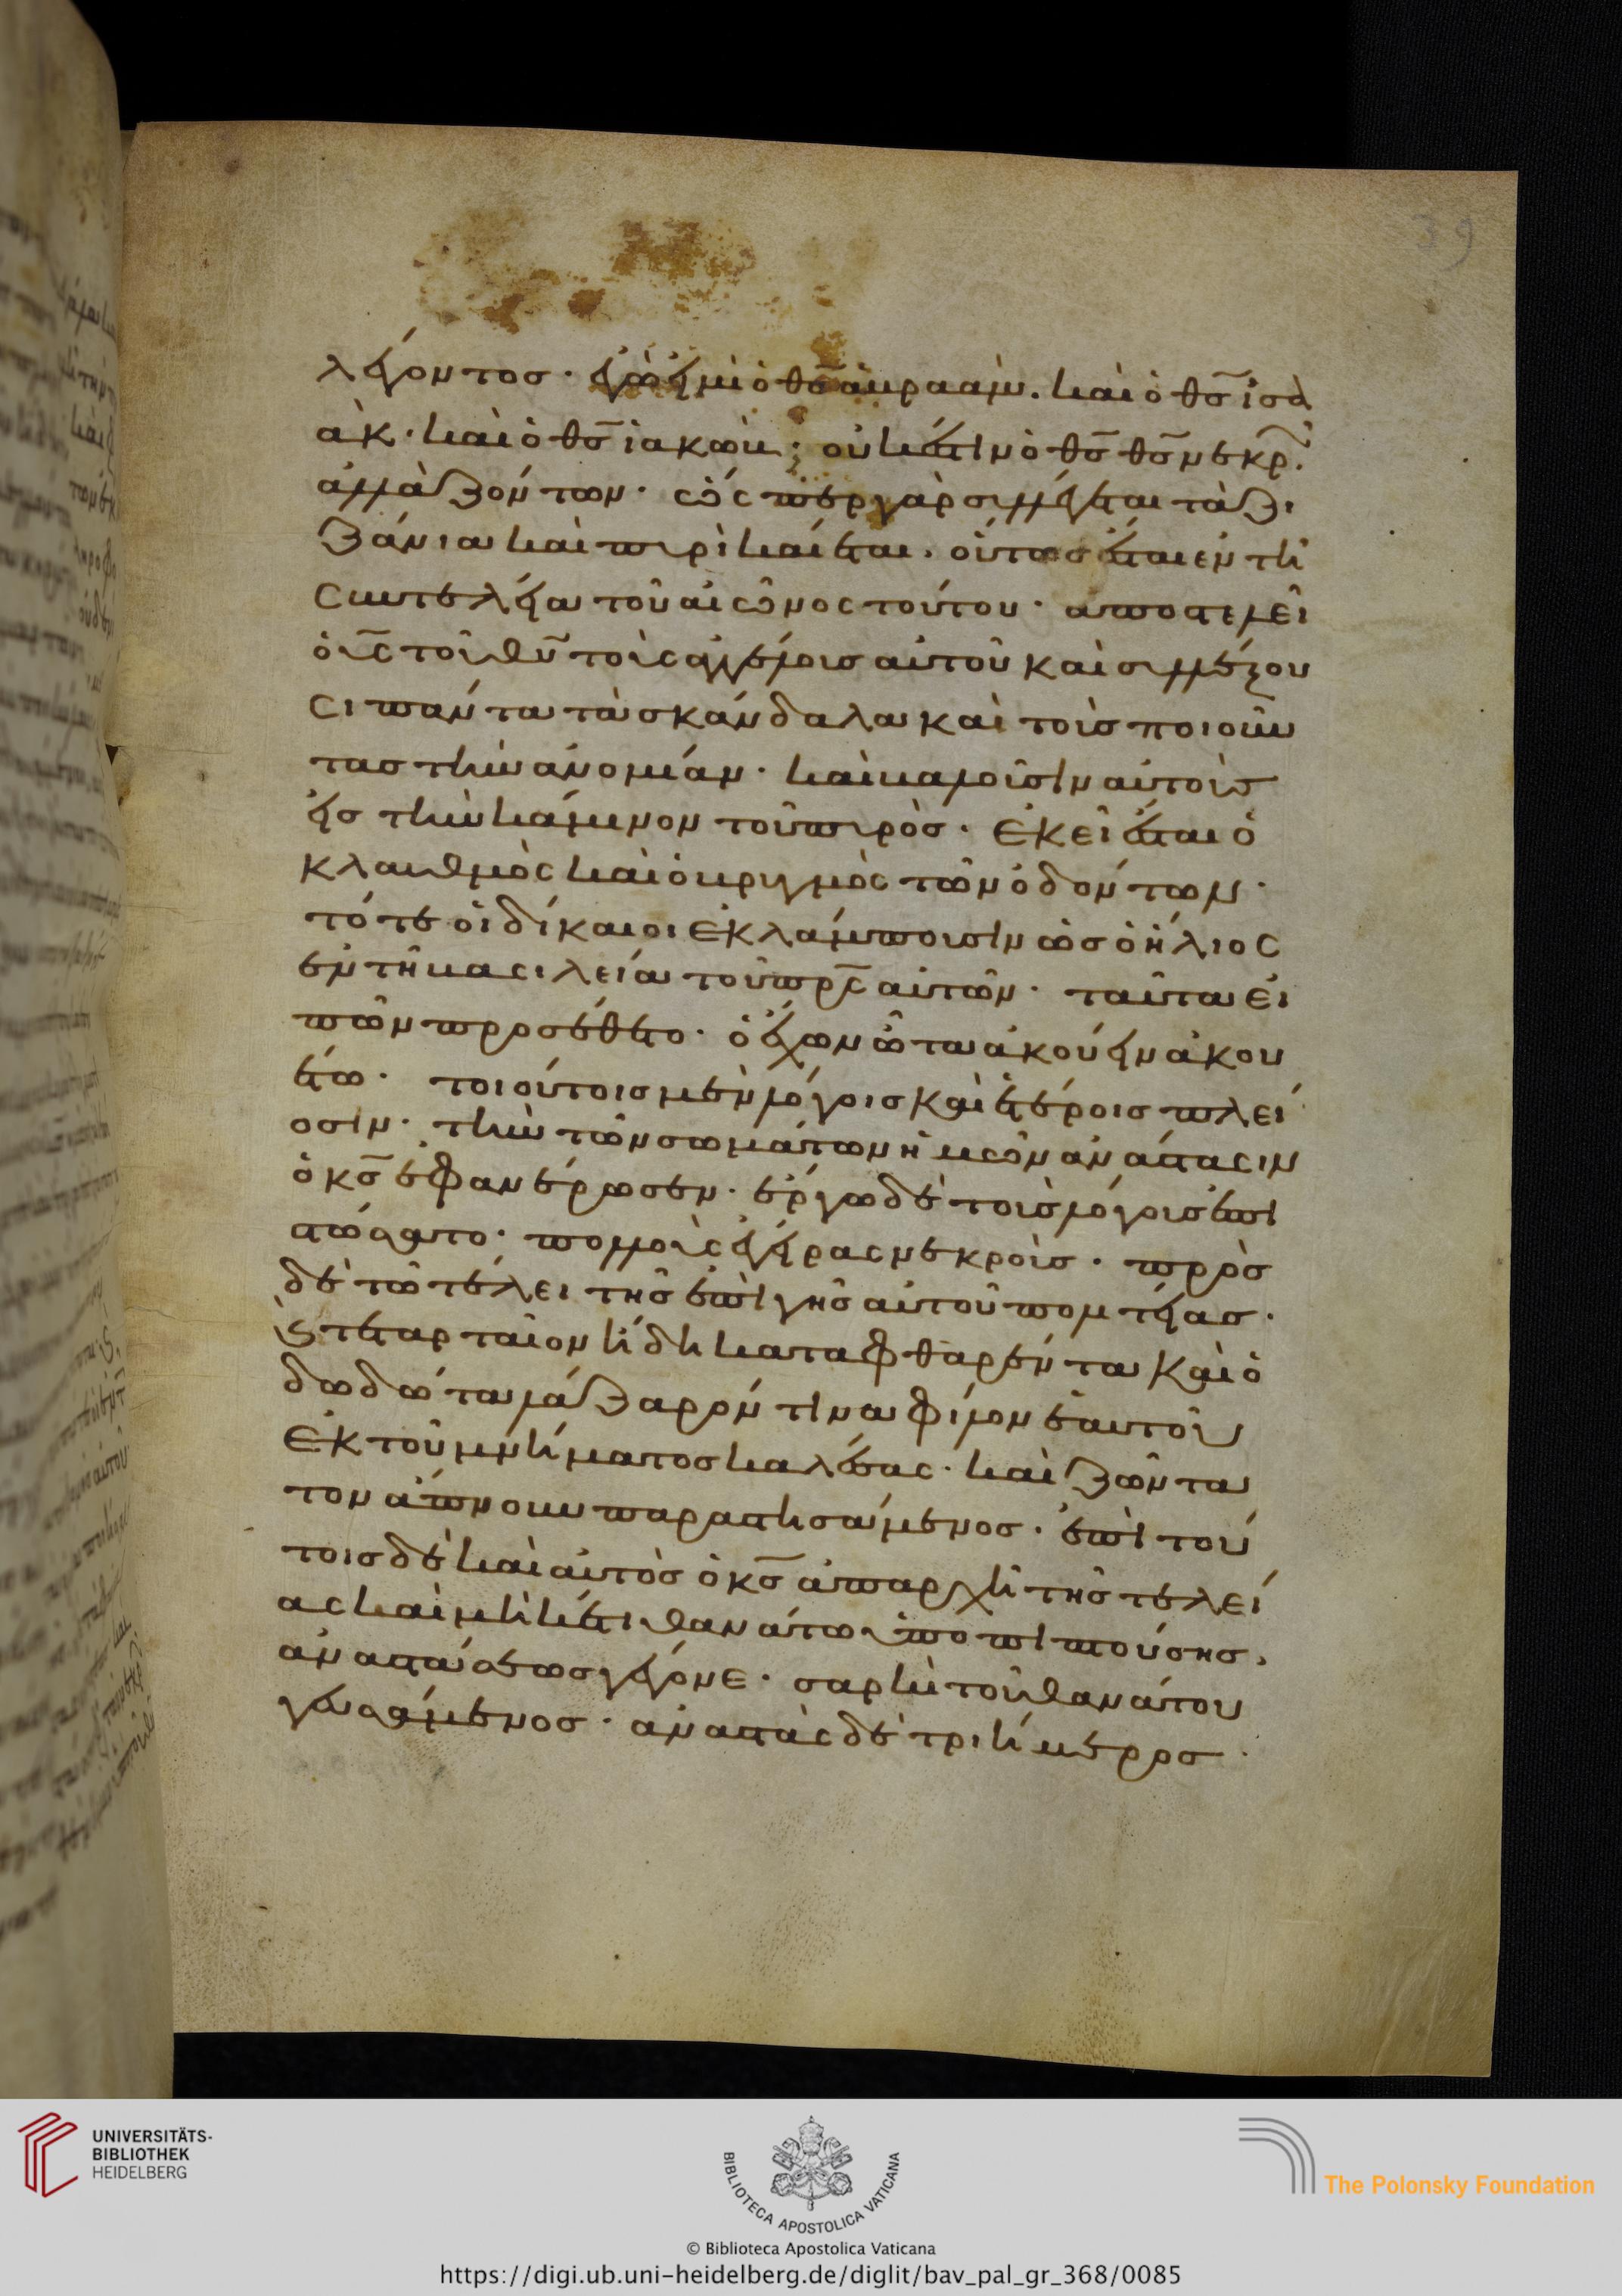 39
λέγοντος· ἐγὼ εἰμὶ ὁ θς̅ ἀβραάμ. καὶ ὁ θς̅ ἰσὰ
ὰκ· καὶ ὁ θς̅ ἰακώβ; οὐκ ἔστιν ὁ θς̅ θς̅ νεκρ̅.
ἀλλὰ ζόντων· ὥσπερ γὰρ συλλέγεται τὰ ζι
ζάνια καὶ πυρὶ καίεται. οὕτως ἔσται ἐν τῆ
συντελεία τοῦ αἰῶνος τούτου· ἀποστελεῖ
ὁ υς̅ τοῦ θυ̅ τοὺς ἀγγέλους αὐτοῦ καὶ συλλέξου
σι πάντα τὰ σκάνδαλα καὶ τοὺς ποιοῦν
τας τὴν ἀνομίαν· καὶ βαλοῦσιν αὐτοὺς
εἰς τὴν κάμινον τοῦ πυρὸς· ἐκεῖ ἔσται ὁ
κλαυθμὸς καὶ ὁ βρυγμὸς τῶν ὀδόντων·
τότε οἱ δίκαιοι ἐκλάμπουσιν ὡς ὁ ἥλιος
ἐν τῆ βασιλεία τοῦ πρς̅ αὐτῶν· ταῦτα εἰ
πῶν προσέθετο· ὁ ἔχων ὦτα ἀκούειν ἀκου
έτω· τοιούτοις μὲν λόγοις καὶ ἑτέροις πλεί
οσιν· τὴν τῶν σωμάτων ἡμῶν ἀνάστασιν
ὁ κς̅ ἐφανέρωσεν· ἔργω δὲ τοὺς λόγους ἐπι
στώσατο· πολλοὺς ἐγείρας νεκροὺς· πρὸς
δὲ τῶ τέλει τῆς ἐπὶ γῆς αὐτοῦ πολιτείας·
τεταρταῖον ἤδη καταφθαρέντα καὶ ὀ
δωδότα λάζαρόν τινα φίλον ἑαυτοῦ
ἐκ τοῦ μνήματος καλέσας· καὶ ζῶντα
τον ἄπνουν παραστησάμενος· ἐπὶ τού
τοις δὲ καὶ αὐτὸς ὁ κς̅ ἀπαρχὴ τῆς τελεί
ας καὶ μὴ κέτι θανάτω ὑποπιπτούσης,
ἀναστάσεως γέγονε· σαρκὶ τοῦ θανάτου
γευσάμενος· ἀναστὰς δὲ τριήμερος·
UNIVERSITÄTS-
BIBLIOTHEK
HEIDELBERG
BIBLIOTECA APOSTOLICA VATICANA
The Polonsky Foundation
© Biblioteca Apostolica Vaticana
https://digi.ub.uni-heidelberg.de/diglit/bav_pal_gr_368/0085